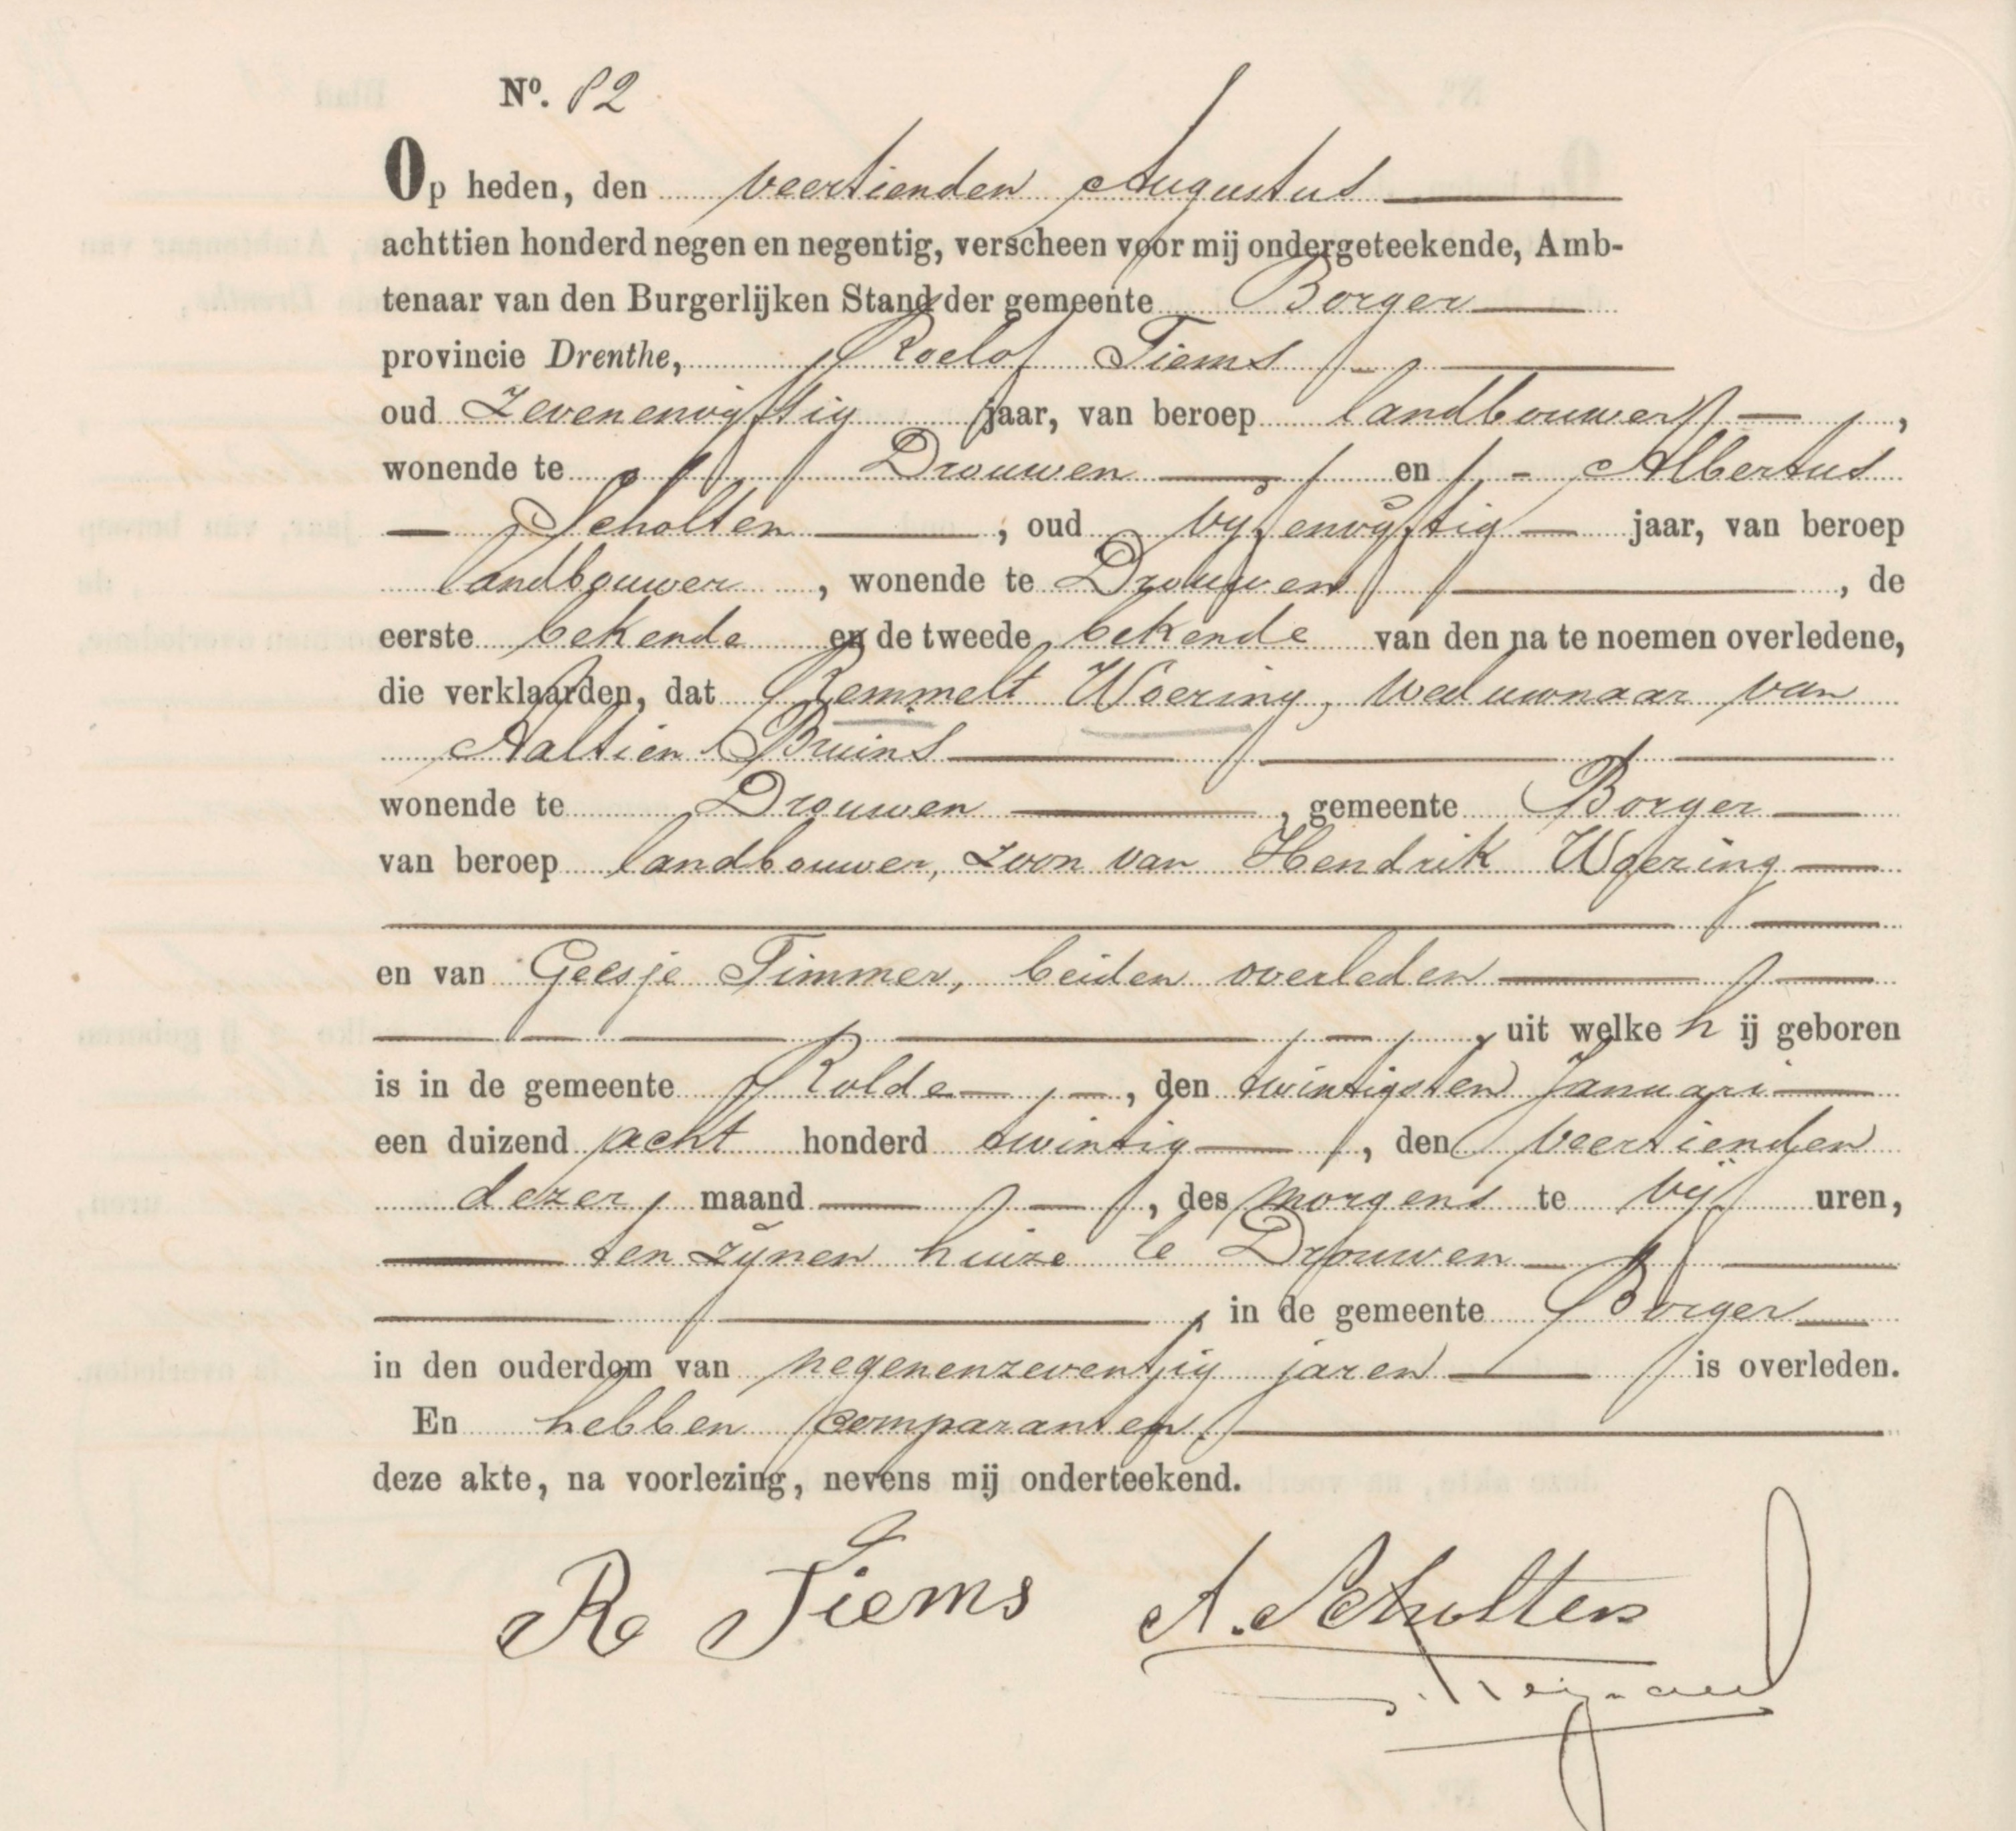 Nº. 82
Op heden, den veertienden Augustus
achttien honderd negen en negentig, verscheen voor mij ondergeteekende, Amb-
tenaar van den Burgerlijken Stand der gemeente Borger
provincie Drenthe, Roelof Tiems
oud zevenenvijftig jaar, van beroep landbouwer,
wonende te Drouwen en Albertus
Scholten, oud vijfenvijftig jaar, van beroep
landbouwer, wonende te Drouwen, de
eerste bekende en de tweede bekende van den na te noemen overledene,
die verklaarden, dat Remmelt Woering, weduwnaar van
Aaltien Bruins
wonende te Drouwen, gemeente Borger
van beroep landbouwer, zoon van Hendrik Woering
en van Geesje Timmer, beiden overleden
, uit welke h ij geboren
is in de gemeente Rolde, den twintigsten Januari
een duizend acht honderd twintig, den veertienden
dezer maand, des morgens te vijf uren,
ten zijnen huize te Drouwen
, in de gemeente Borger
in den ouderdom van negenenzeventig jaren is overleden.
En hebben comparanten
deze akte, na voorlezing, nevens mij onderteekend.
R Tiems A. Scholten